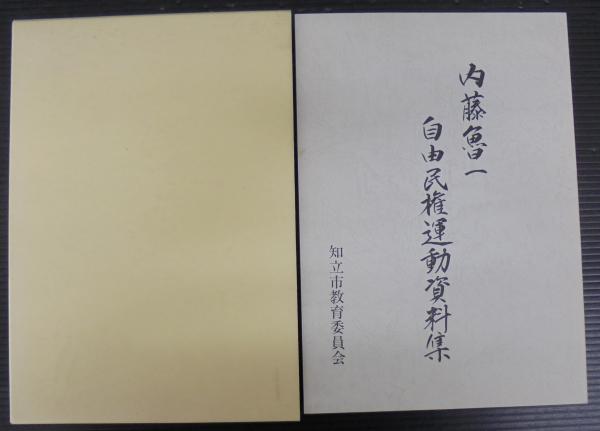 内藤魯一
自由民権運動資料集
知立市教育委員会